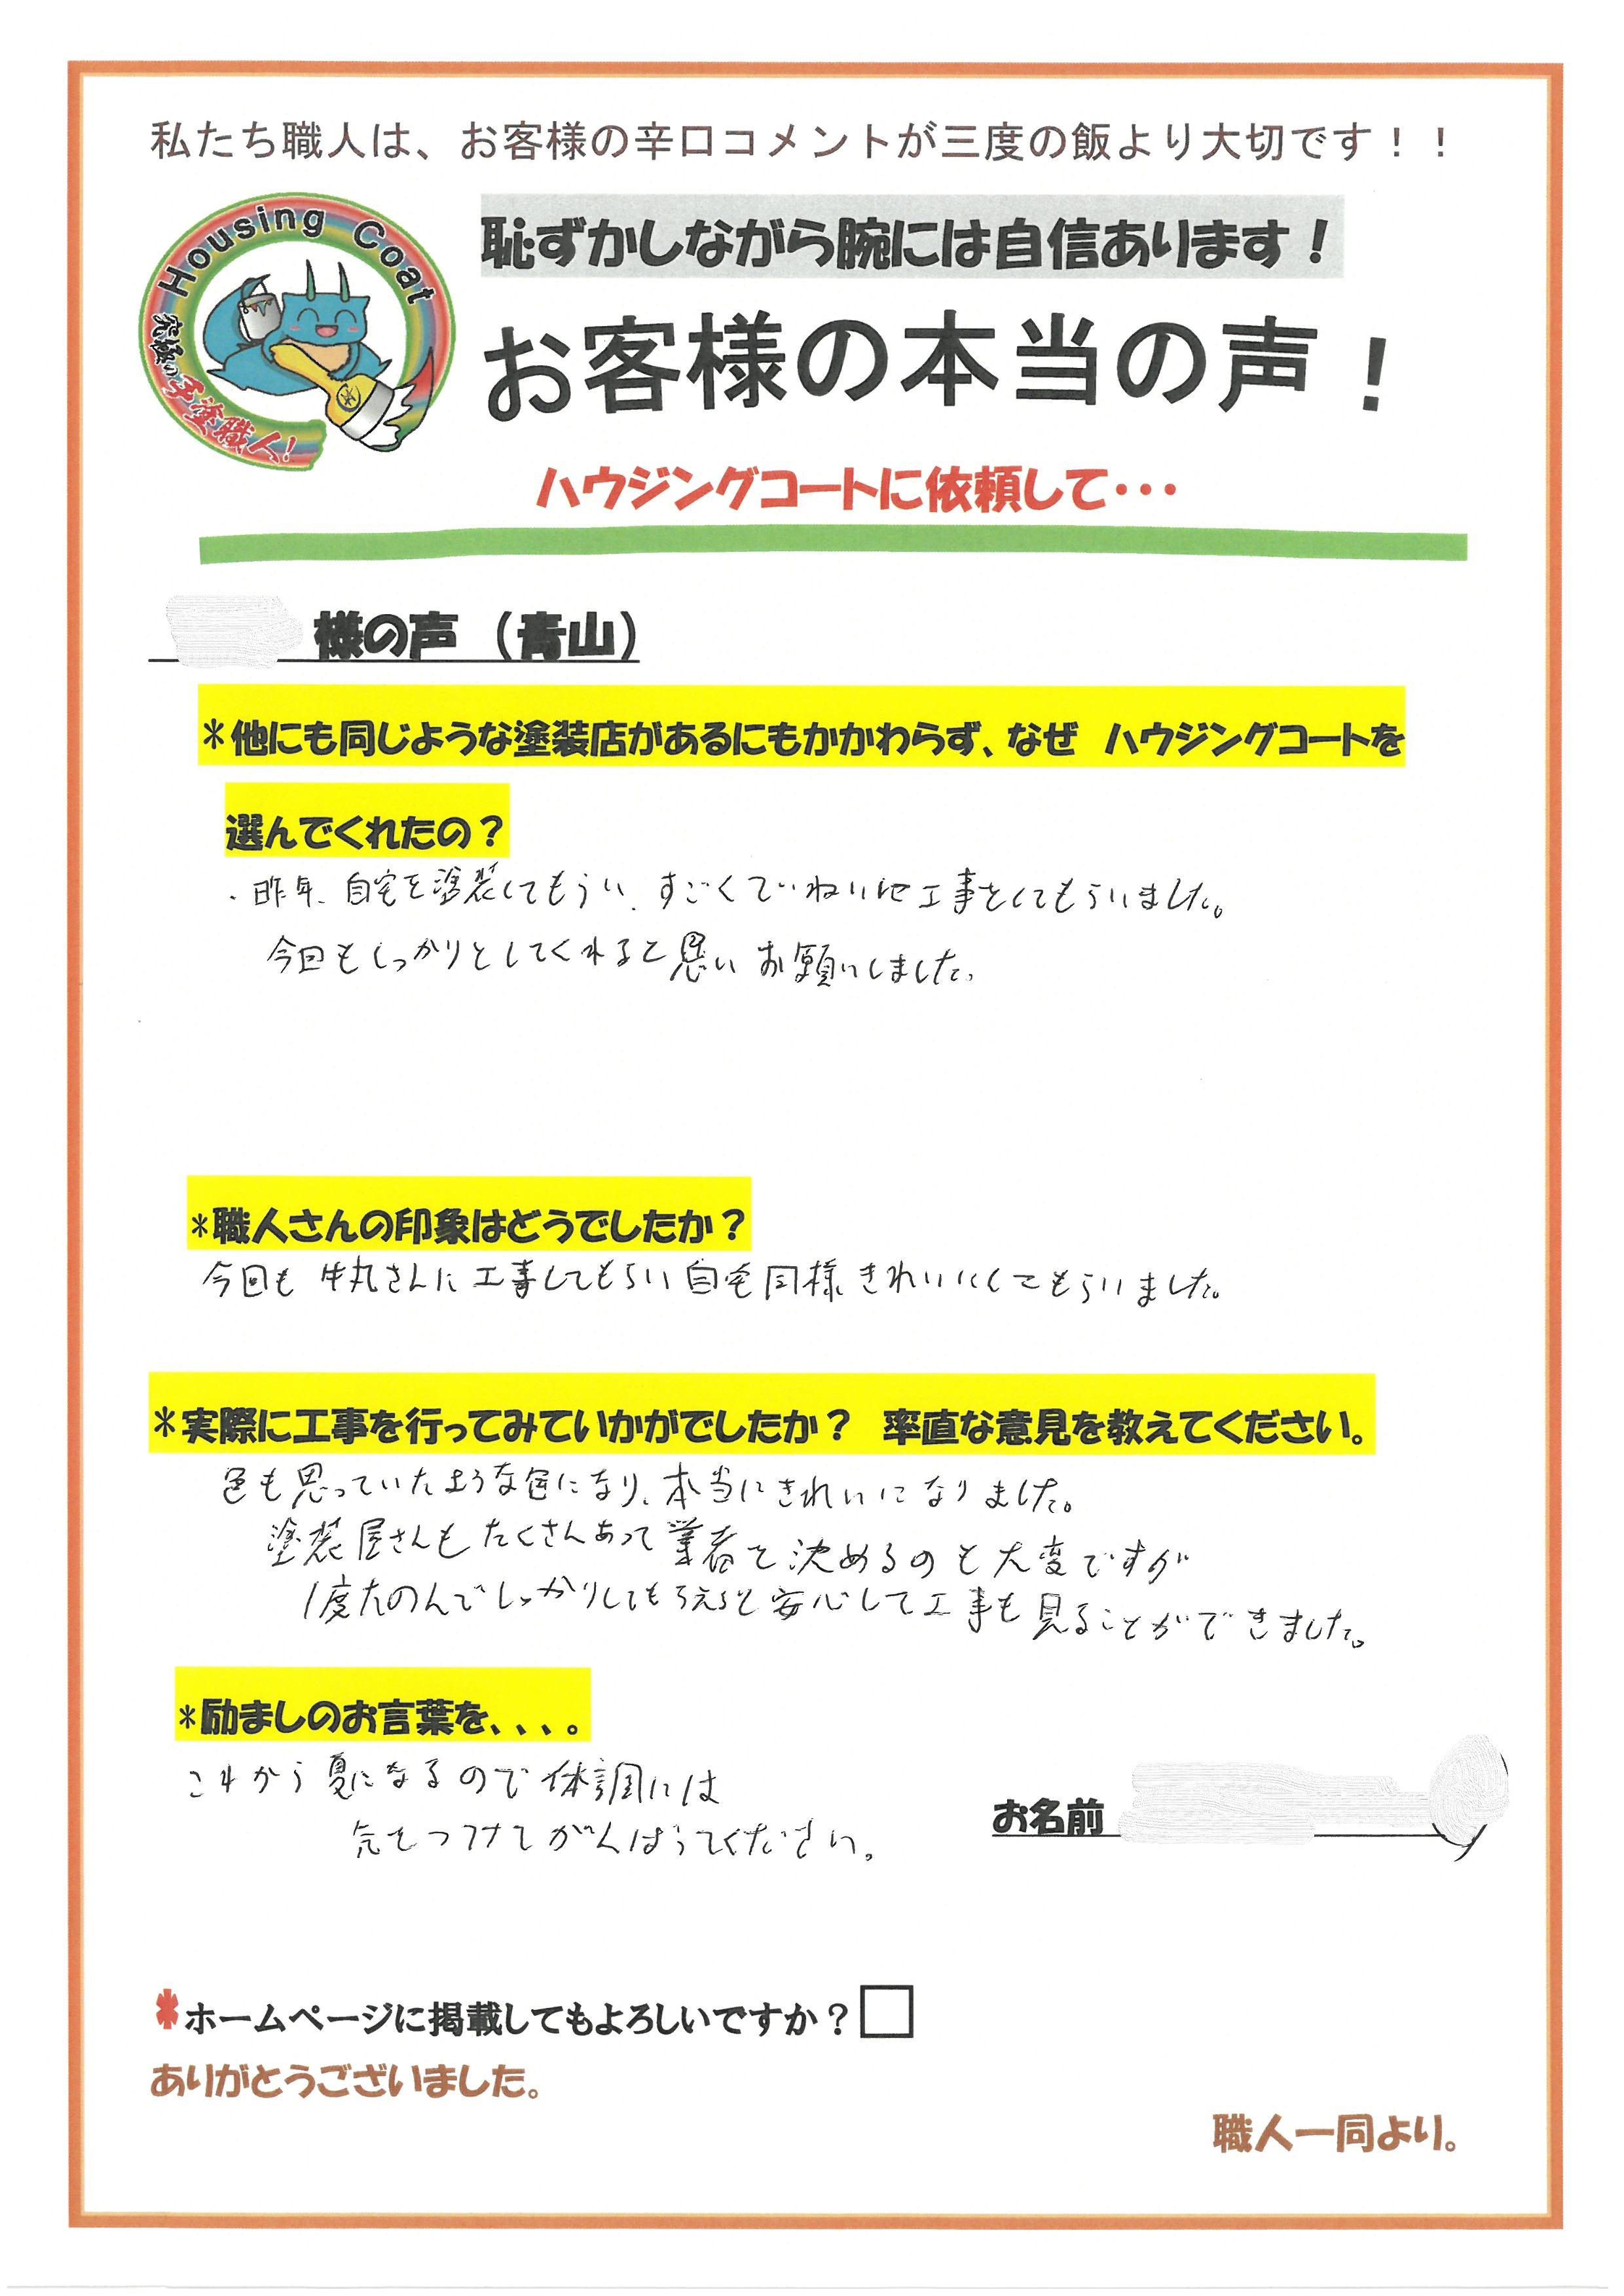 私たち職人は、お客様の辛口コメントが三度の飯より大切です！！
Housing Coat
究極の手塗職人!
恥ずかしながら腕には自信あります！
お客様の本当の声！
ハウジングコートに依頼して・・・
様の声（青山）
＊他にも同じような塗装店があるにもかかわらず、なぜ ハウジングコートを
選んでくれたの？
・昨年、自宅を塗装してもらい、すごくていねいに工事をしてもらいました。
今回もしっかりとしてくれると思いお願いしました。
＊職人さんの印象はどうでしたか？
今回も牛丸さんに工事してもらい自宅同様きれいにしてもらいました。
＊実際に工事を行ってみていかがでしたか？ 率直な意見を教えてください。
色も思っていたような色になり、本当にきれいになりました。
塗装屋さんもたくさんあって業者を決めるのも大変ですが
1度たのんでしっかりしてもらえると安心して工事も見ることができました。
＊励ましのお言葉を、、、。
これから夏になるので体調には
気をつけてがんばってください。
お名前
＊ホームページに掲載してもよろしいですか？□
ありがとうございました。
職人一同より。